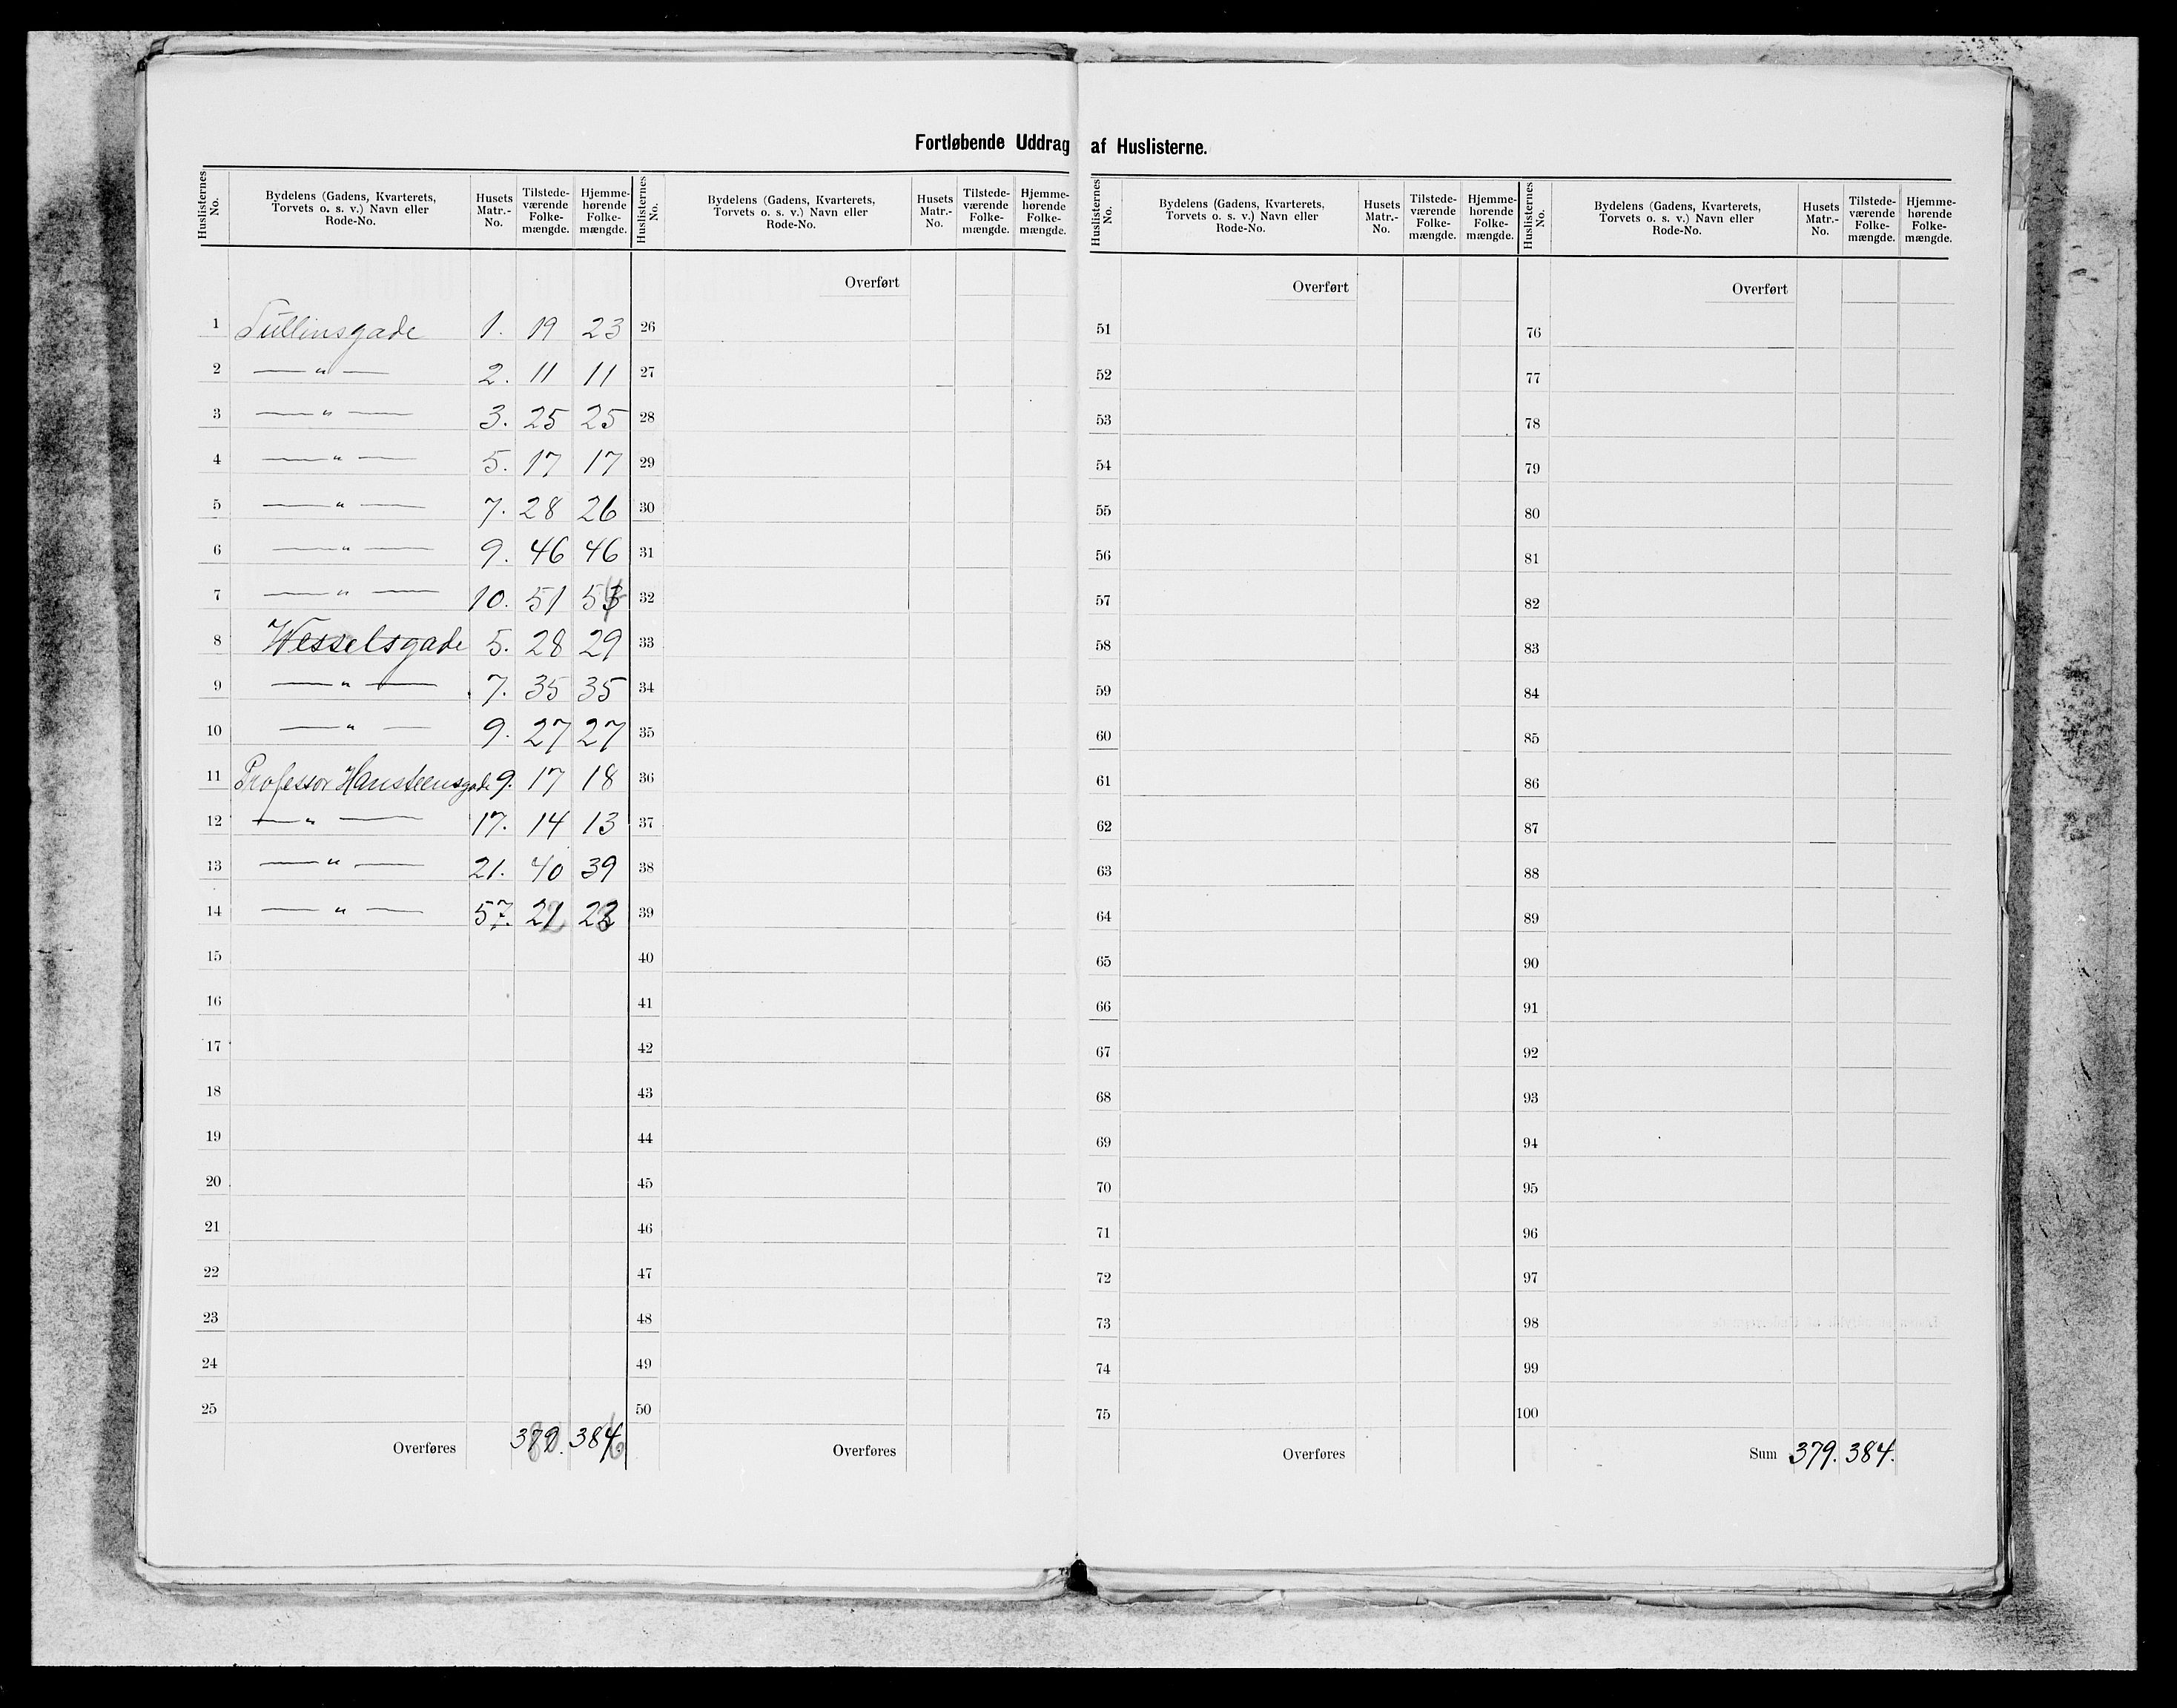 Fortløbende Uddrag af Huslisterne.
Huslisternes No. | Bydelens (Gadens, Kvarterets, Torvets o. s. v.) Navn eller Rode-No. | Husets Matr.-No. | Tilstedeværende Folkemængde. | Hjemmehørende Folkemængde.
Huslisternes No. | Bydelens (Gadens, Kvarterets, Torvets o. s. v.) Navn eller Rode-No. | Husets Matr.-No. | Tilstedeværende Folkemængde. | Hjemmehørende Folkemængde.
Huslisternes No. | Bydelens (Gadens, Kvarterets, Torvets o. s. v.) Navn eller Rode-No. | Husets Matr.-No. | Tilstedeværende Folkemængde. | Hjemmehørende Folkemængde.
Huslisternes No. | Bydelens (Gadens, Kvarterets, Torvets o. s. v.) Navn eller Rode-No. | Husets Matr.-No. | Tilstedeværende Folkemængde. | Hjemmehørende Folkemængde.
1 Tullinsgade 1. 19 23
2 — " — 2. 11 11
3 — " — 3. 25 25
4 — " — 5. 17 17
5 — " — 7. 28 26
6 — " — 9. 46 46
7 — " — 10. 51 54
8 Wesselsgade 5. 28 29
9 — " — 7. 35 35
10 — " — 9. 27 27
11 Professor Hansteensgade 9. 17 18
12 — " — 17. 14 13
13 — " — 21. 40 39
14 — " — 57. 21 22
15
16
17
18
19
20
21
22
23
24
25
Overføres 379. 384.
Overført
26
27
28
29
30
31
32
33
34
35
36
37
38
39
40
41
42
43
44
45
46
47
48
49
50
Overføres
Overført
51
52
53
54
55
56
57
58
59
60
61
62
63
64
65
66
67
68
69
70
71
72
73
74
75
Overføres
Overført
76
77
78
79
80
81
82
83
84
85
86
87
88
89
90
91
92
93
94
95
96
97
98
99
100
Sum 379. 384.